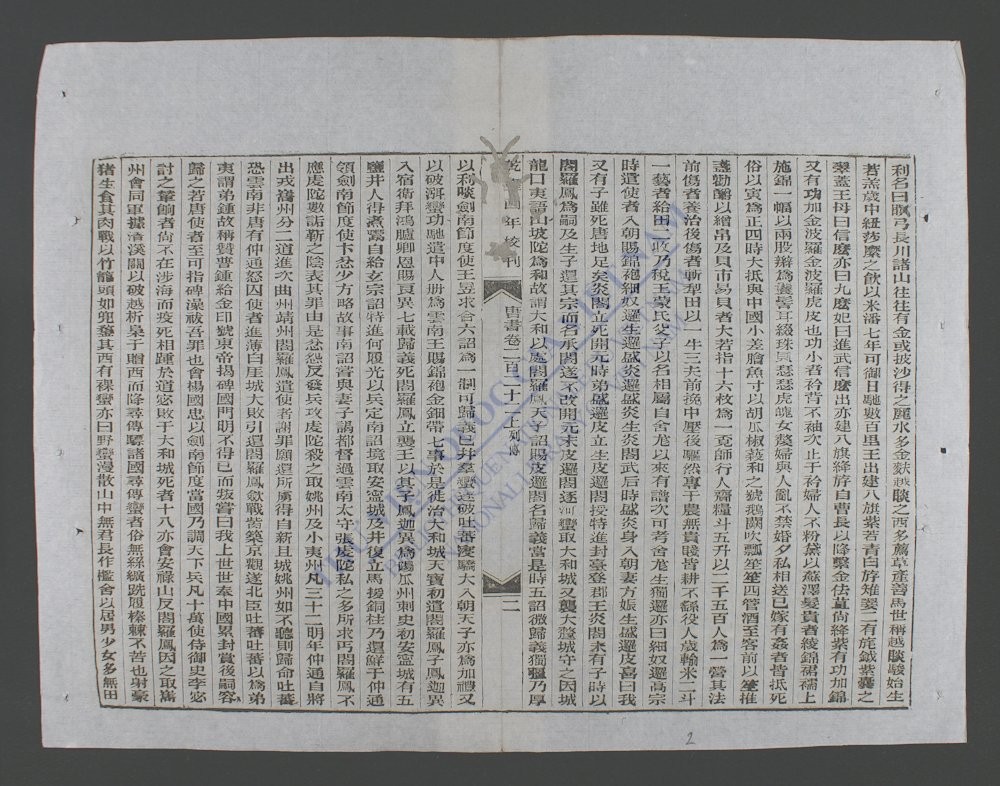 利名曰瞑弓長川諸山往往有金或披沙得之麗水多金麩越睒之西多薦草產善馬世稱越睒駿始生
若羔歲中紐莎縻之飲以米潘七年可御日馳數百里王出建八旗紫若青白斿雉翣二有旄鉞紫囊之
翠蓋王母曰信麼亦曰九麼妃曰進武信麼出亦建八旗絳斿自曹長以降繫金佉苴尚絳紫有功加錦
又有功加金波羅金波羅虎皮也功小者衿背不袖次止于衿婦人不粉黛以蘇澤髮貴者綾錦裙襦上
施錦一幅以兩股辮為鬟髻耳綴珠貝瑟瑟虎魄女嫠婦與人亂不禁婚夕私相送已嫁有姦者皆抵死
俗以寅為正四時大抵與中國小差膾魚寸以胡瓜椒榝和之號鵝闕吹瓢笙笙四管酒至客前以笙推
盞勸釂以繒帛及貝市易貝者大若指十六枚為一覓師行人齎糧斗五升以二千五百人為一營其法
前傷者養治後傷者斬犁田以一牛三夫前挽中壓後驅然專于農無貴賤皆耕不繇役人歲輸米二斗
一藝者給田二收乃稅王蒙氏父子以名相屬自舍尨以來有譜次可考舍尨生獨邏亦曰細奴邏高宗
時遣使者入朝賜錦袍細奴邏生邏盛炎邏盛炎生炎閤武后時盛炎身入朝妻方娠生盛邏皮喜曰我
又有子雖死唐地足矣炎閤立死開元時弟盛邏皮立生皮邏閤授特進封臺登郡王炎閤未有子時以
閤羅鳳為嗣及生子還其宗而名承閤遂不改開元末皮邏閤逐河蠻取大和城又襲大釐城守之因城
龍口夷語山坡陀為和故謂大和以處閤羅鳳天子詔賜皮邏閤名歸義當是時五詔微歸義獨彊乃厚
四年校刊 唐書卷二百二十二上列傳 二
以利啖劍南節度使王昱求合六詔為一制可歸義已并羣蠻遂破吐蕃寖驕大入朝天子亦為加禮又
以破渳蠻功馳遣中人冊為雲南王賜錦袍金鈿帶七事於是徙治大和城天寶初遣閤羅鳳子鳳迦異
入宿衛拜鴻臚卿恩賜良異七載歸義死閤羅鳳立襲王以其子鳳迦異為陽瓜州刺史初安寧城有五
鹽井人得煮鬻自給玄宗詔特進何履光以兵定南詔境取安寧城及井復立馬援銅柱乃還鮮于仲通
領劍南節度使卞忿少方略故事南詔嘗與妻子謁都督過雲南太守張虔陀私之多所求丐閤羅鳳不
應虔陀數詬靳之陰表其罪由是忿怨反發兵攻虔陀殺之取姚州及小夷州凡三十二明年仲通自將
出戎巂州分二道進次曲州靖州閤羅鳳遣使者謝罪願還所虜得自新且城姚州如不聽則歸命吐蕃
恐雲南非唐有仲通怒囚使者進薄白厓城大敗引還閤羅鳳斂戰胔築京觀遂北臣吐蕃吐蕃以為弟
夷謂弟鍾故稱贊普鍾給金印號東帝揭碑國門明不得已而叛嘗曰我上世世奉中國累封賞後嗣容
歸之若唐使者至可指碑澡祓吾罪也會楊國忠以劍南節度當國乃調天下兵凡十萬使侍御史李宓
討之輦餉者尚不在涉海而疫死相踵於道宓敗于大和城死者十八亦會安祿山反閤羅鳳因之取巂
州會同軍據清溪關以破越析梟于贈西而降尋傳驃諸國尋傳蠻者俗無絲纊跣履榛棘不苦也射豪
豬生食其肉戰以竹籠頭如兜鍪其西有裸蠻亦曰野蠻漫散山中無君長作檻舍以居男少女多無田
2